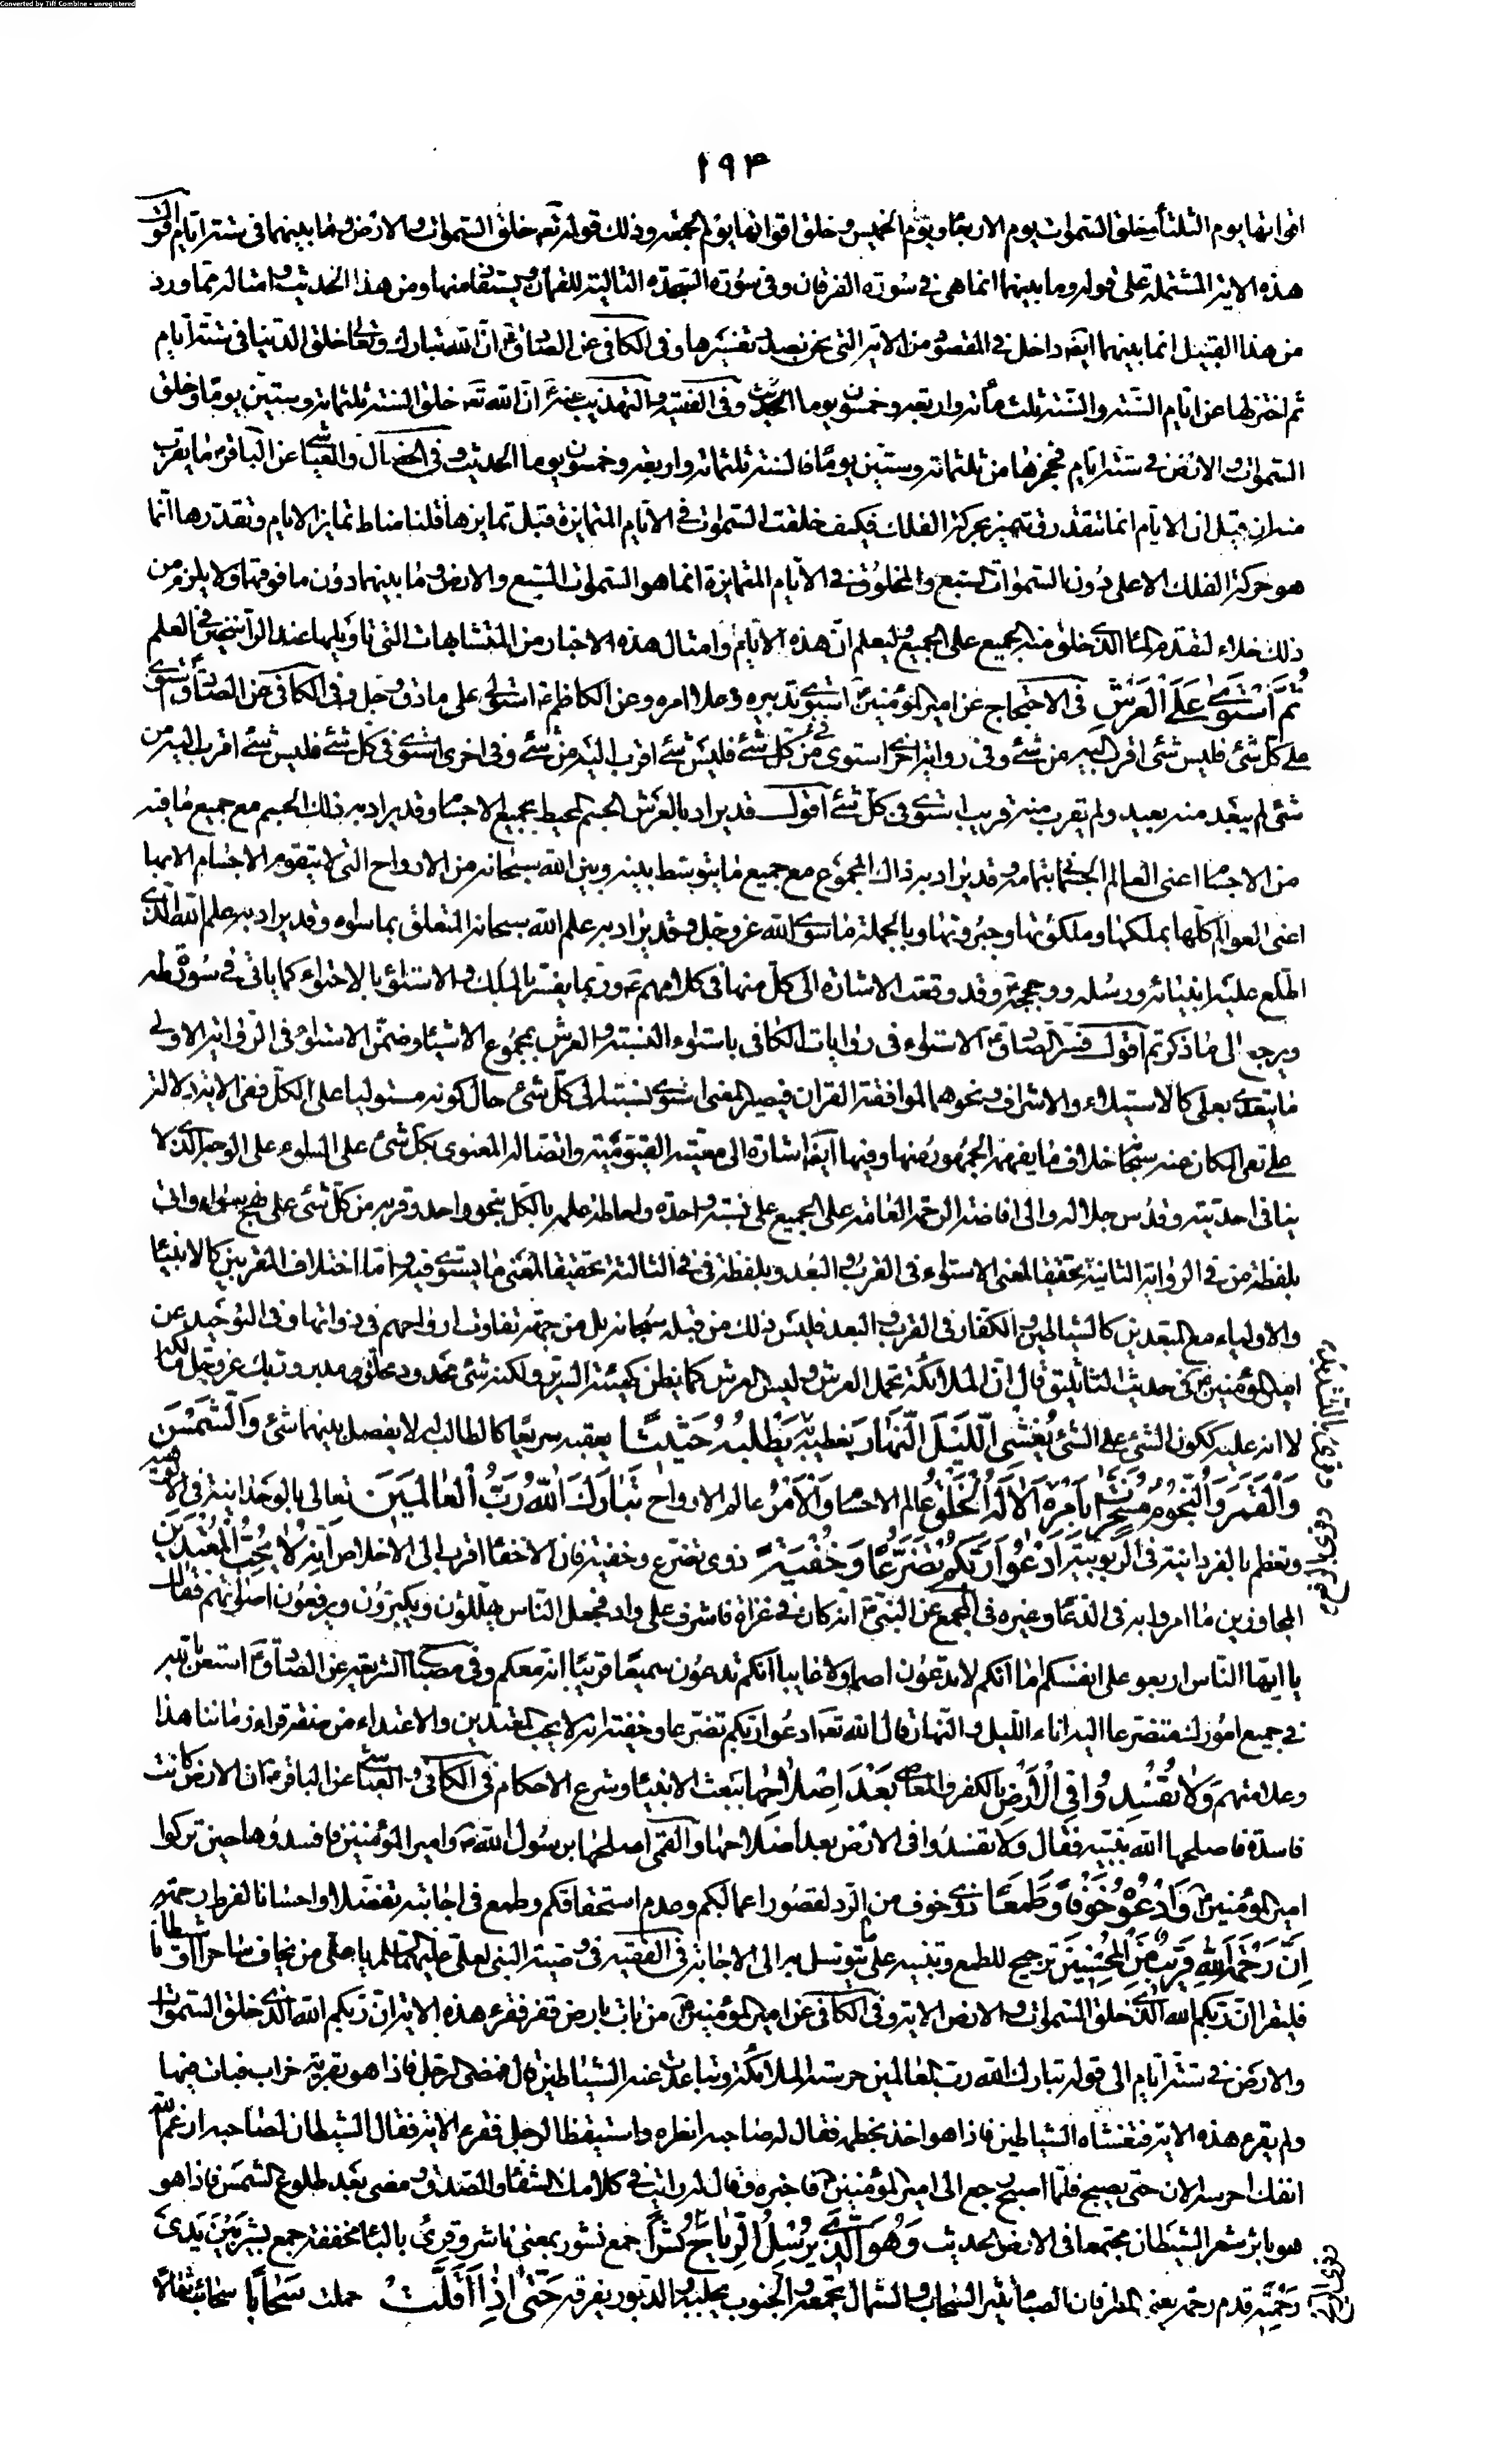 Converted by Tiff Combine - unregistered
١٩٣
اقواتها يوم الثلثاء وخلق السموات يوم الاربعاء ويوم الخميس وخلق اقواتها يوم الجمعه وذلك قوله تعه خلق السموات والارض وما بينهما فى ستة ايام اقول
هذه الاية المشتملة على قوله وما بينهما انما هى فى سورة الفرقان وفى سورة السجدة التالية للقمان ويستفاد منها ومن هذا الحديث وامثاله مما ورد
من هذا القبيل ان ما بينهما ايضا داخل فى المقصود من الاية التى نحن بصدد تفسيرها وفى الكافى عن الصادق ان الله تبارك وتعالى خلق الدنيا فى ستة ايام
ثم اختزلها عن ايام السنة والسنة ثلث مأة واربعه وخمسون يوما الحديث وفى الفقيه والتهذيب عنه ان الله تعه خلق السنة ثلثمائة وستين يوما وخلق
السموات والارض فى ستة ايام فحجزها من ثلثمائة وستين يوما فالسنة ثلثمائة واربعة وخمسون يوما الحديث وفى الخصال والعياشى عن الباقر ما يقرب
منه ان قيل ان الايام انما تتقدر وتتميز بحركة الفلك فكيف خلقت السموات فى الايام المتمايزة قبل تمايزها قلنا مناط تمايز الايام وتقدرها انما
هو حركة الفلك الاعلى دون السموات السبع والمخلوق فى الايام المتمايزة انما هو السموات السبع والارض وما بينهما دون ما فوقهما ولا يلزم من
ذلك خلاء لتقدم الماء الذى خلق منه الجميع على الجميع وليعلم ان هذه الاية وامثال هذه الاخبار من المتشابهات التى تاويلها عند الراسخين فى العلم
ثم استوى على العرش فى الاحتجاج عن امير المؤمنين استوى تدبيره وعلا امره وعن الكاظم استولى على ما دق وجل وفى الكافى عن الصادق استوى
على كل شئ فليس شئ اقرب اليه من شئ وفى رواية اخرى استوى من كل شئ فليس شئ اقرب اليه من شئ وفى اخرى استوى فى كل شئ فليس شئ اقرب اليه من
شئ لم يبعد منه بعيد ولم يقرب منه قريب استوى فى كل شئ اقول قد يراد بالعرش الجسم المحيط بجميع الاجسام وقد يراد به ذلك الجسم مع جميع ما فيه
من الاجسام اعنى العالم الجسمانى بتمامه وقد يراد به ذاك المجموع مع جميع ما يتوسط بينه وبين الله سبحانه من الارواح التى لا يتقوم الاجسام الا بها
اعنى العوالم كلها بملكها وملكوتها وجبروتها وبالجملة ما سوى الله عز وجل وقد يراد به علم الله سبحانه المتعلق بما سواه وقد يراد به علم الله الذى
اطلع عليه انبيائه ورسله وحججه وقد وقعت الاشارة الى كل منها فى كلامهم ع وربما يفسر بالملك والاستواء بالاحتواء كما ياتى فى سورة طه
ويرجع الى ما ذكرتم اقول فسر الصادق الاستواء فى روايات الكافى باستواء النسبة والعرش بمجموع الاشياء وضمن الاستواء فى الرواية الاولى
ما يتعدى بعلى كالاستيلاء والاشراف ونحوهما لموافقة القران فيصير المعنى استوى نسبته الى كل شئ حال كونه مستوليا على الكل ففى الاية دلالة
على نفى المكان عنه سبحانه خلاف ما يفهمه الجمهور منها وفيها ايضا اشارة الى معيته القيومية واتصاله المعنوى بكل شئ على السواء على الوجه الذى لا
ينافى احديته وقدس جلاله والى افاضة الرحمة العامة على الجميع على نسبة واحدة واحاطة علمه بالكل بنحو واحد وقربه من كل شئ على نهج سواء واتى
بلفظة من فى الرواية الثانية تحقيقا لمعنى الاستواء فى القرب والبعد وبلفظة فى فى الثالثة تحقيقا لمعنى ما يستوى فيه واما اختلاف المقربين كالانبياء
والاولياء مع المبعدين كالشياطين والكفار فى القرب والبعد فليس ذلك من قبله سبحانه بل من جهة تفاوت ارواحهم فى ذواتها وفى التوحيد عن
امير المؤمنين فى حديث الجاثليق قال ان الملائكة تحمل العرش وليس العرش كما يظن كهيئة السرير ولكنه شئ محدود مخلوق مدبر وربك عز وجل مالكه
لا انه عليه ككون الشئ على الشئ يغشى الليل النهار يغطيه به يطلبه حثيثا يعقبه سريعا كالطالب له لا يفصل بينهما شئ والشمس
والقمر والنجوم مسخرات بامره الا له الخلق عالم الاجسام والامر عالم الارواح تبارك الله رب العالمين تعالى بالوحدانية فى الالوهية
وتعظم بالفردانية فى الربوبية ادعوا ربكم تضرعا وخفية ذوى تضرع وخفية فان الاخفاء اقرب الى الاخلاص انه لا يحب المعتدين
المجاوزين ما امروا به فى الدعاء وغيره فى المجمع عن النبى انه كان فى غزاة فاشرف على واد فجعل الناس يهللون ويكبرون ويرفعون اصواتهم فقال
يا ايها الناس اربعو على انفسكم اما انكم لا تدعون اصم ولا غايبا انكم تدعون سميعا قريبا انه معكم وفى مصباح الشريعه عن الصادق استعن بالله
فى جميع امورك متضرعا اليه اناء الليل والنهار قال الله تعه ادعوا ربكم تضرعا وخفية انه لا يحب المعتدين والاعتداء من صفة قراء زماننا هذا
وعلامتهم ولا تفسدوا فى الارض بالكفر والمعاصى بعد اصلاحها ببعث الانبياء وشرع الاحكام فى الكافى والعياشى عن الباقر ان الارض كانت
فاسدة فاصلحها الله بنبيه فقال ولا تفسدوا فى الارض بعد اصلاحها والقمى اصلحها برسول الله وامير المؤمنين فافسدوها حين تركوا
امير المؤمنين وادعوه خوفا وطمعا ذوى خوف من الرد لقصور اعمالكم وعدم استحقاقكم وطمع فى اجابته تفضلا واحسانا لفرط رحمته
ان رحمة الله قريب من المحسنين ترجيح للطمع وتنبيه على ما يتوسل به الى الاجابة فى الفقيه فى وصية النبى لعلى عليهما السلم يا على من يخاف ساحرا او شيطانا
فليقرا ان ربكم الله الذى خلق السموات والارض الاية وفى الكافى عن امير المؤمنين من بات بارض قفر فقرء هذه الاية ان ربكم الله الذى خلق السموات
والارض فى ستة ايام الى قوله تبارك الله رب العالمين حرسته الملائكة وتباعدت عنه الشياطين قال فمضى الرجل فاذا هو بقرية خراب فبات فيها
ولم يقرء هذه الاية فتغشاه الشياطين فاذا هو اخذ بخطمه فقال له صاحبه انظره واستيقظ الرجل فقرء الاية فقال الشيطان لصاحبه ارغم الله
انفك احرسه الان حتى يصبح فلما اصبح رجع الى امير المؤمنين فاخبره وقال له رايت فى كلامك الشفاء والصدق ومضى بعد طلوع الشمس فاذا هو
هو باثر شعر الشيطان مجتمعا فى الارض الحديث وهو الذى يرسل الرياح نشرا جمع نشور بمعنى ناشر وقرئ بالباء مخففة جمع بشير بين يدى
رحمته قدم رحمته يعنى المطر فان الصبا تثير السحاب والشمال تجمعه والجنوب يجلبه والدبور يفرقه حتى اذا اقلت حملت سحابا سحائب ثقالا